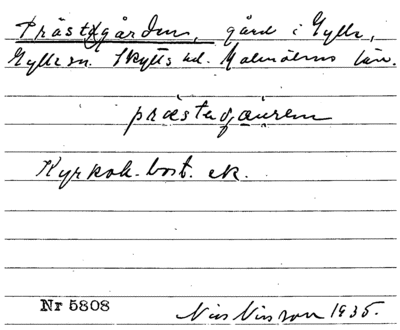 Prästgården, gård i Gylle,
Gylle sn. Skytts hd. Malmöhus län.
Kyrkoh. bost. ek.
Nr 5808 Nils Nilsson 1935.